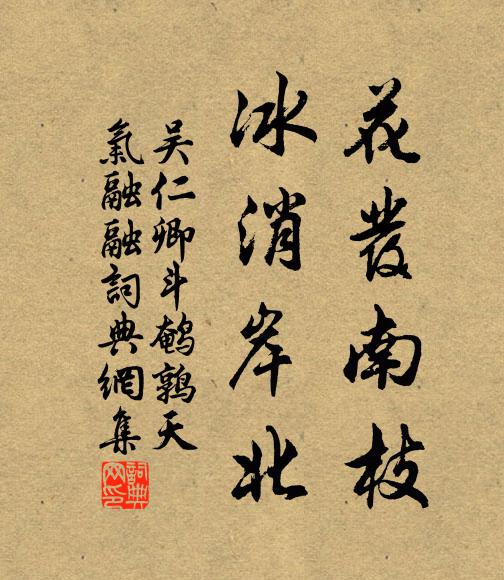 花發南枝
冰消岸北
吴仁卿斗鹌鹑天
氣融融詞典網集
詞典
网印